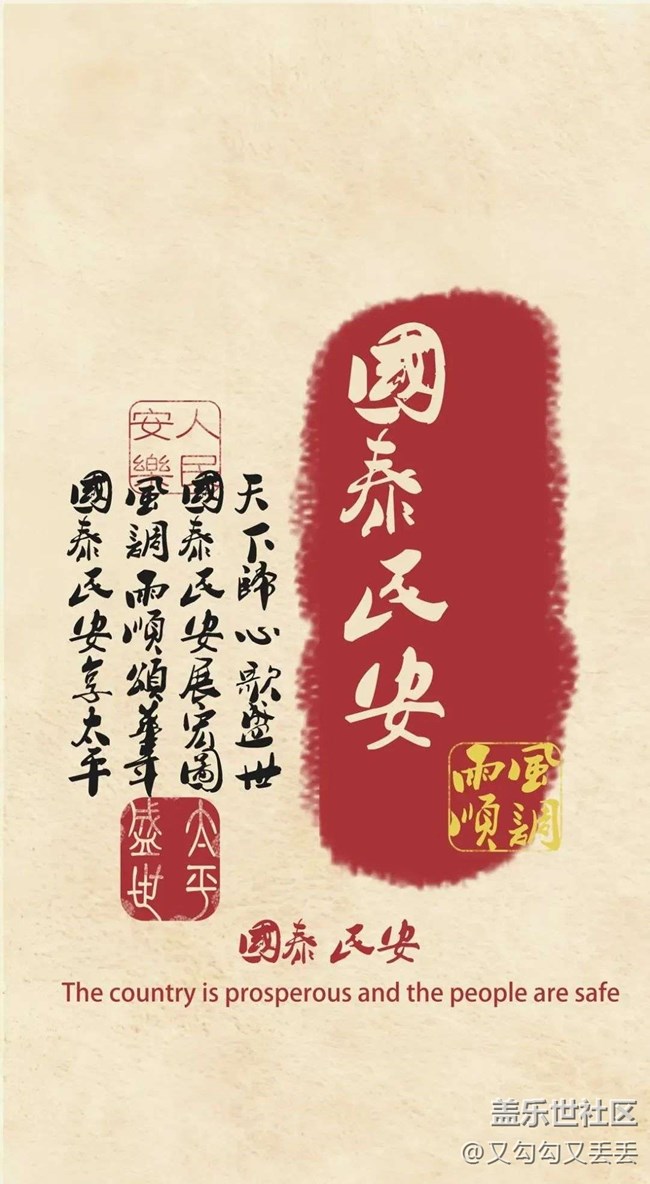 國泰民安
風調
雨順
人民
安樂
天下歸心歌盛世
國泰民安展宏圖
風調雨順頌華章
國泰民安享太平
太平
盛世
國泰民安
The country is prosperous and the people are safe
盖乐世社区
@又勾勾又丢丢